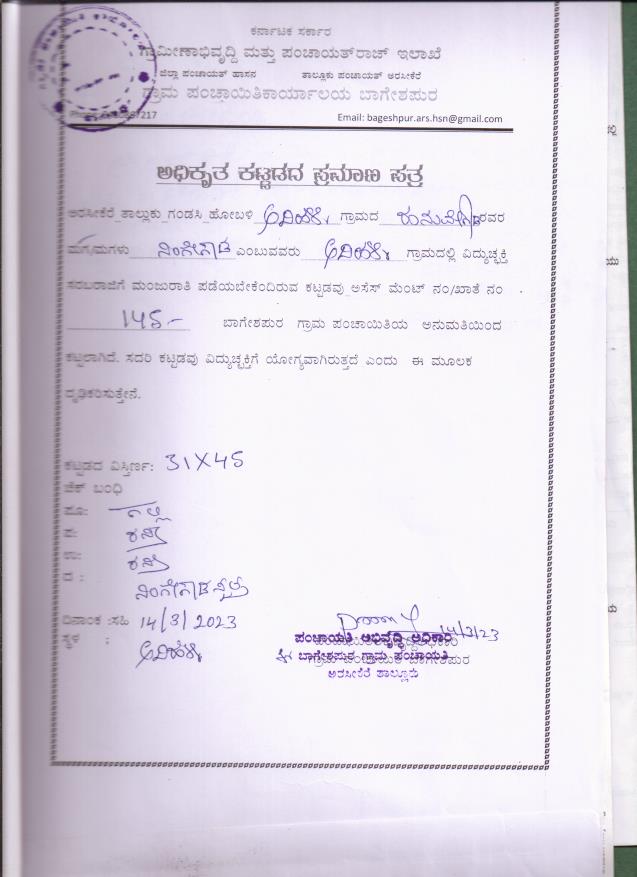 ಕರ್ನಾಟಕ ಸರ್ಕಾರ
ಗ್ರಾಮೀಣಾಭಿವೃದ್ಧಿ ಮತ್ತು ಪಂಚಾಯತ್‌ರಾಜ್ ಇಲಾಖೆ
ಜಿಲ್ಲಾ ಪಂಚಾಯತ್ ಹಾಸನ ತಾಲ್ಲೂಕು ಪಂಚಾಯತ್ ಅರಸೀಕೆರೆ
ಗ್ರಾಮ ಪಂಚಾಯಿತಿಕಾರ್ಯಾಲಯ ಬಾಗೇಶಪುರ
Email: bageshpur.ars.hsn@gmail.com
ಅಧಿಕೃತ ಕಟ್ಟಡದ ಪ್ರಮಾಣ ಪತ್ರ
ಅರಸೀಕೆರೆ ತಾಲ್ಲುಕು ಗಂಡಸಿ ಹೋಬಳಿ ಗ್ರಾಮದ ರವರ
ಮಗ/ಮಗಳು ನಿಂಗೇಗೌಡ ಎಂಬುವವರು ಗ್ರಾಮದಲ್ಲಿ ವಿದ್ಯುಚ್ಛಕ್ತಿ
ಸರಬರಾಜಿಗೆ ಮಂಜುರಾತಿ ಪಡೆಯಬೇಕೆಂದಿರುವ ಕಟ್ಟಡವು ಅಸೆಸ್ ಮೆಂಟ್ ನಂ/ಖಾತೆ ನಂ
145- ಬಾಗೇಶಪುರ ಗ್ರಾಮ ಪಂಚಾಯಿತಿಯ ಅನುಮತಿಯಿಂದ
ಕಟ್ಟಲಾಗಿದೆ. ಸದರಿ ಕಟ್ಟಡವು ವಿದ್ಯುಚ್ಛಕ್ತಿಗೆ ಯೋಗ್ಯವಾಗಿರುತ್ತದೆ ಎಂದು ಈ ಮೂಲಕ
ದೃಢಿಕರಿಸುತ್ತೇನೆ.
ಕಟ್ಟಡದ ವಿಸ್ತಿರ್ಣ: 31X45
ಚೆಕ್ ಬಂಧಿ
ಪೂ:
ಪ: ರಸ್ತೆ
ಉ: ರಸ್ತೆ
ದ : ನಿಂಗೇಗೌಡ
ದಿನಾಂಕ :ಸಹಿ 14/3/2023
ಸ್ಥಳ :
14/3/23
ಪಂಚಾಯತಿ ಅಭಿವೃದ್ಧಿ ಅಧಿಕಾರಿ
ಬಾಗೇಶಪುರ ಗ್ರಾಮ ಪಂಚಾಯತಿ
ಅರಸೀಕೆರೆ ತಾಲ್ಲೂಕು